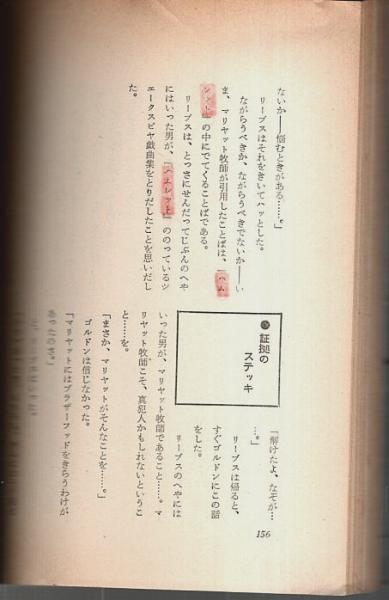 ないか――悩むときがある……。」
リーブスはそれをきいてハッとした。
ながらうべきか、ながらうべきでないか――い
ま、マリヤット牧師が引用したことばは、「ハム
レット」の中にでてくることばである。
リーブスは、とっさにせんだってじぶんのへや
にはいった男が、「ハムレット」ののっているシ
ェークスピヤ戯曲集をとりだしたことを思いだし
た。
証拠の
ステッキ
「解けたよ、なぞが…
…。」
リーブスは帰ると、
すぐゴルドンにこの話
をした。
リーブスのへやには
いった男が、マリヤット牧師であること……。マ
リヤット牧師こそ、真犯人かもしれないというこ
と……を。
「まさか、マリヤットがそんなことを……。」
ゴルドンは信じなかった。
「マリヤットにはブラザーフッドをきらうわけが
あったのさ。」
156